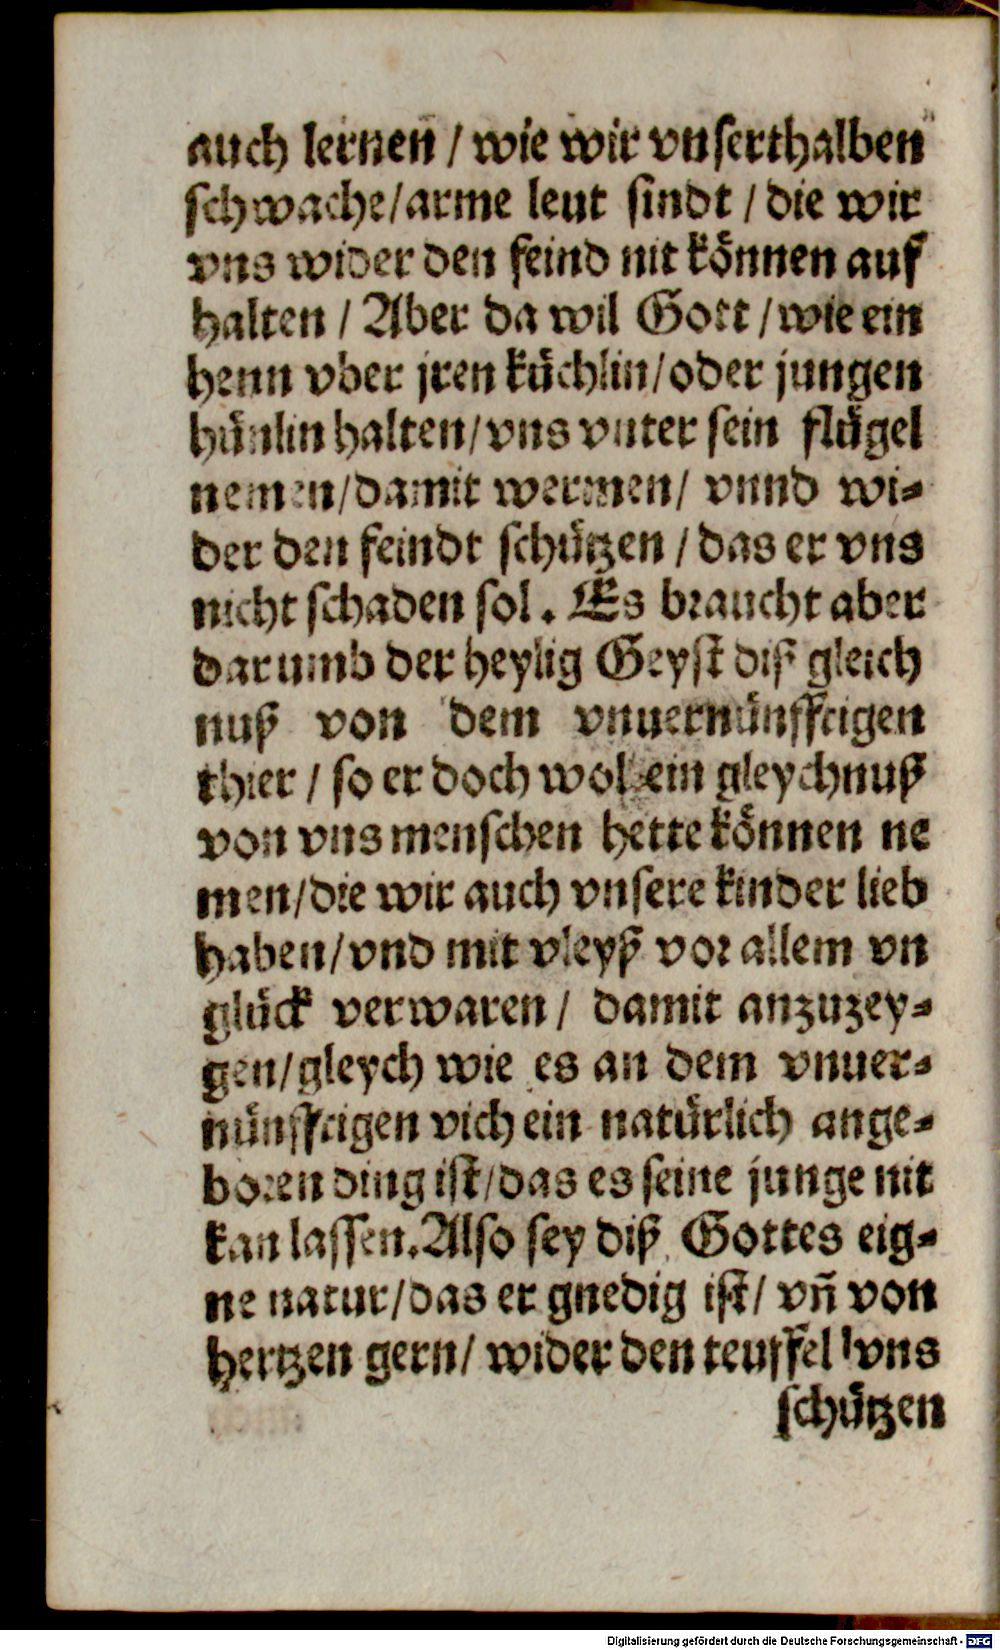 auch lernen / wie wir vnserthalben
schwache/arme leut sindt / die wir
vns wider den feind nit können auf
halten / Aber da wil Gott / wie ein
henn vber jren küchlin/oder jungen
hünlin halten/vns vnter sein flügel
nemen/damit wermen/ vnnd wi⸗
der den feindt schützen / das er vns
nicht schaden sol. Es braucht aber
darumb der heylig Geyst diß gleich
nuß von dem vnuernünfftigen
thier / so er doch wol ein gleychnuß
von vns menschen hette können ne
men/die wir auch vnsere kinder lieb
haben/vnd mit vleyß vor allem vn
glück verwaren/ damit anzuzey⸗
gen/gleych wie es an dem vnuer⸗
nünfftigen vich ein natürlich ange⸗
boren ding ist/das es seine junge nit
kan lassen. Also sey diß Gottes eig⸗
ne natur/das er gnedig ist/ vñ von
hertzen gern/ wider den teuffel vns
schützen
Digitalisierung gefördert durch die Deutsche Forschungsgemeinschaft - DFG